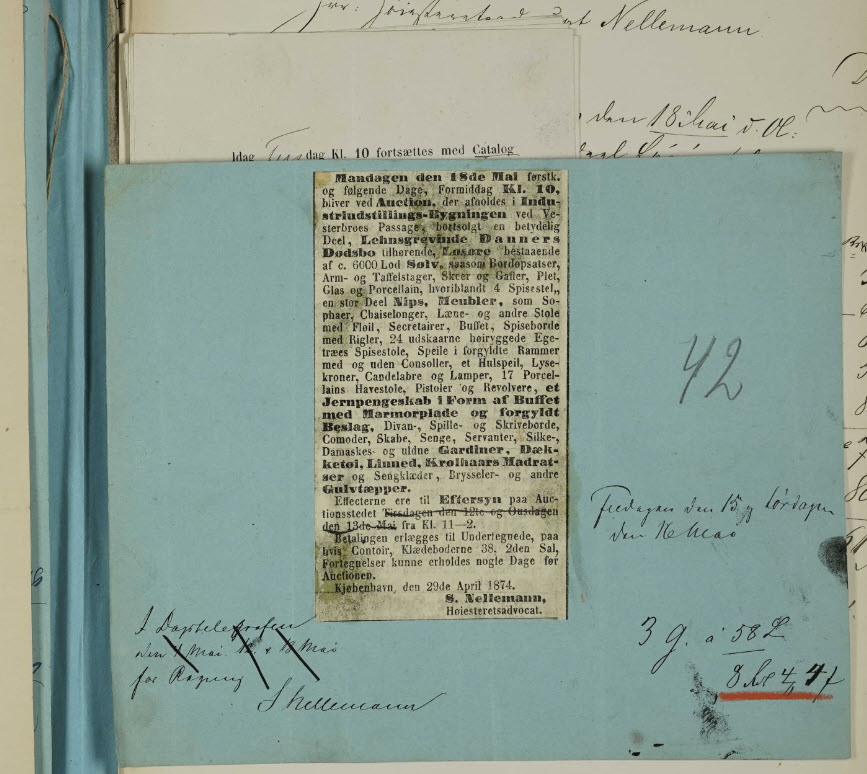 Nellemann
den 18 Mai
Idag Kl. 10 fortsættes med Catalog
Mandagen den 18de Mai førstk.
og følgende Dage, Formiddag Kl. 10,
bliver ved Auction, der afholdes i Indu-
striudstillings-Bygningen ved Ve-
sterbroes Passage, bortsolgt en betydelig
Deel, Lehnsgrevinde Danners
Dødsbo tilhørende, Løsøre bestaaende
af c. 6000 Lod Sølv, saasom Bordopsatser,
Arm- og Taffelstager, Skeer og Gafler, Plet,
Glas og Porcellain, hvoriblandt 4 Spisestel,
en stor Deel Nips, Meubler, som So-
phaer, Chaiselonger, Læne- og andre Stole
med Fløil, Secretairer, Buffet, Spiseborde
med Rigler, 24 udskaarne høiryggede Ege-
træes Spisestole, Speile i forgyldte Rammer
med og uden Consoller, et Hulspeil, Lyse-
kroner, Candelabre og Lamper, 17 Porcel-
lains Havestole, Pistoler og Revolvere, et
Jernpengeskab i Form af Buffet
med Marmorplade og forgyldt
Beslag, Divan-, Spille- og Skriveborde,
Comoder, Skabe, Senge, Servanter, Silke-,
Damaskes- og uldne Gardiner, Dæk-
ketøi, Linned, Krølhaars Madrat-
ser og Sengklæder, Brysseler- og andre
Gulvtæpper.
Effecterne ere til Eftersyn paa Auc-
tionsstedet Tirsdagen den 12te og Onsdagen
den 13de Mai fra Kl. 11—2.
Betalingen erlægges til Undertegnede, paa
hvis Contoir, Klædeboderne 38. 2den Sal,
Fortegnelser kunne erholdes nogle Dage før
Auctionen.
Kjøbenhavn, den 29de April 1874.
S. Nellemann,
Høiesteretsadvocat.
42
Fredagen den 15 og Lørdagen
den 16 Mai
I Dagstelegrafen
den Mai
for Regning
S Nellemann
3 G. à 58
8